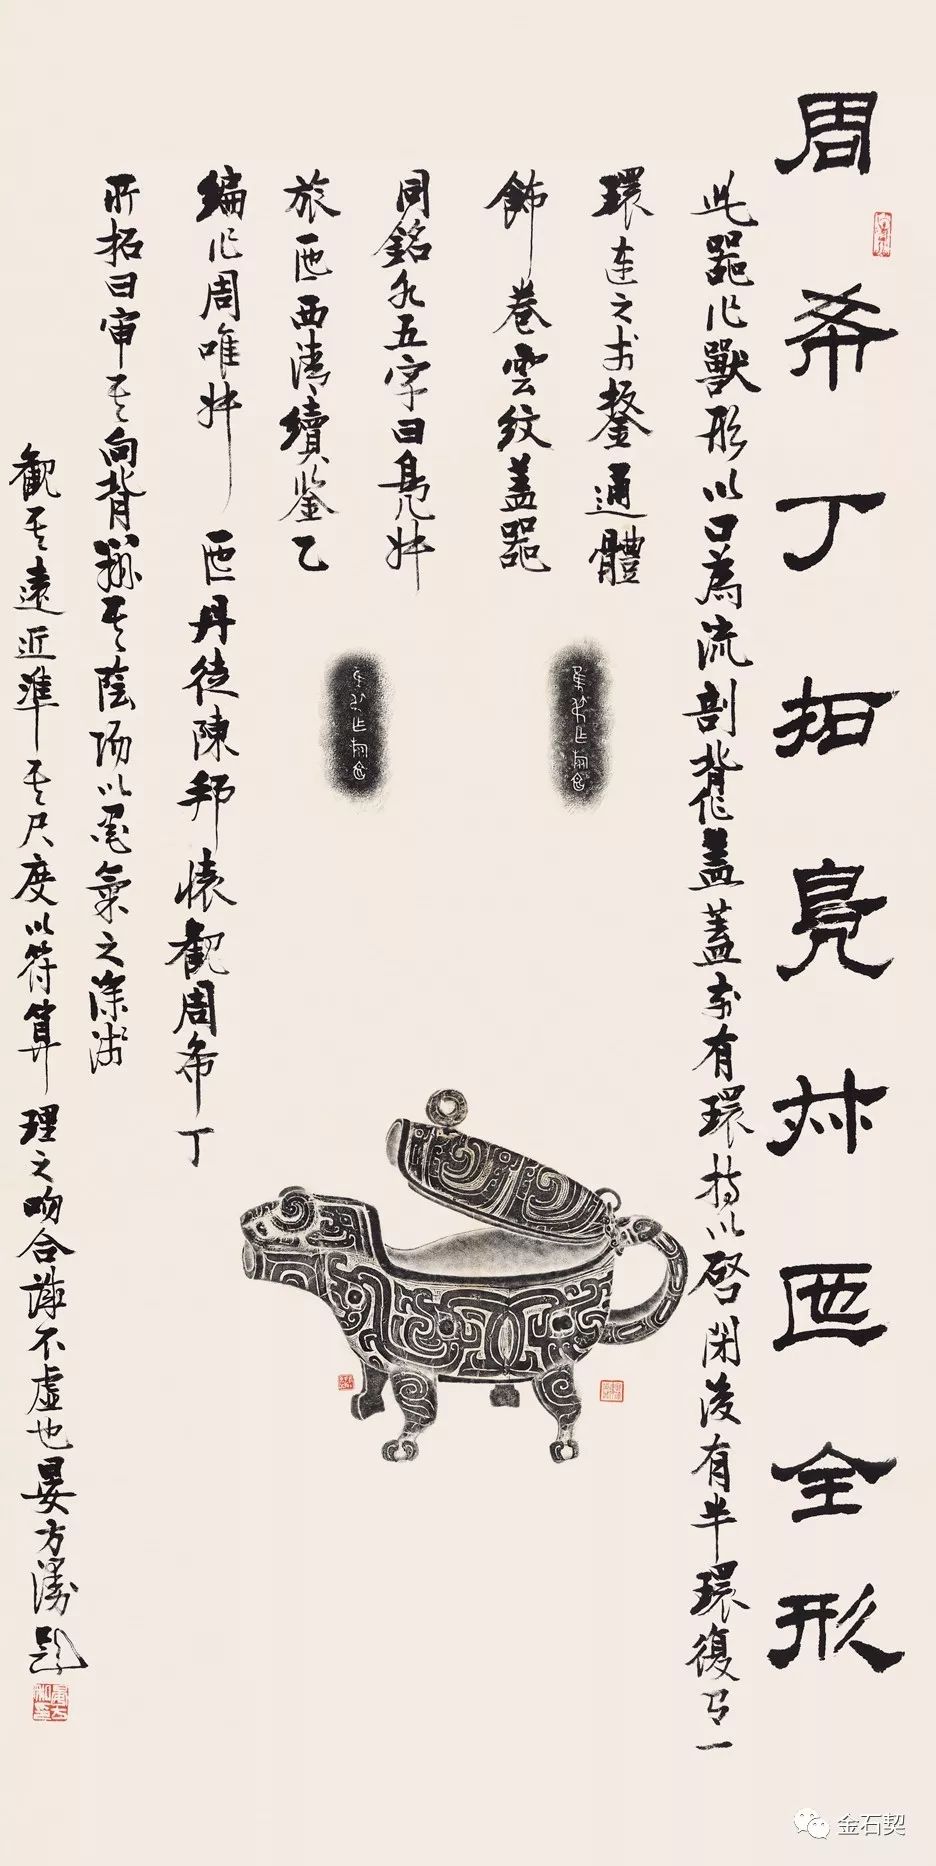 周希丁拓鳧叔匜全形
此器作獸形以口為流剖背作蓋蓋前有環持以啓閉後有半環復有一
環連之於鋬通體
飾卷雲紋蓋器
同銘文五字曰鳧叔
旅匜西清續鑒乙
編作周唯叔匜丹徒陳邦懷觀周希丁
所拓曰审其向背辨其陰陽以墨氣之深淺
觀其遠近準其尺度以符算理之吻合諒不虛也晏方 題
金石契